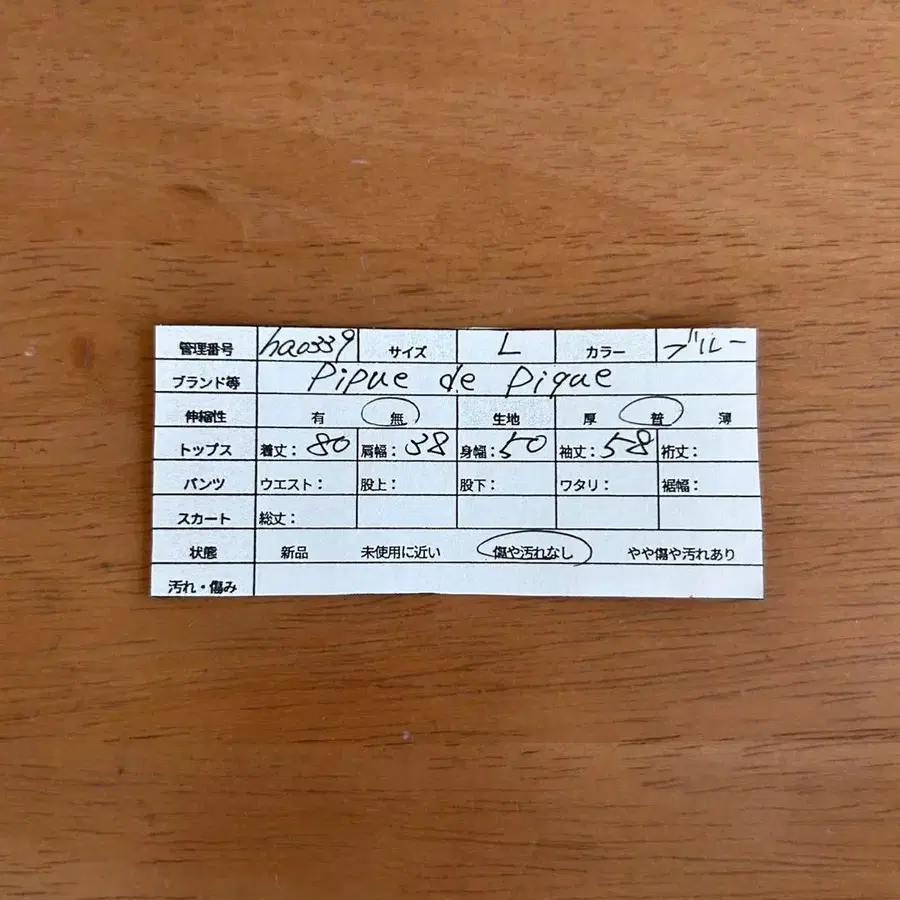 管理番号 ha0339 サイズ L カラー ブルー
ブランド等 Pipue de Pique
伸縮性 有 無 生地 厚 普 薄
トップス 着丈:80 肩幅:38 身幅:50 袖丈:58 裄丈:
パンツ ウエスト: 股上: 股下: ワタリ: 裾幅:
スカート 総丈:
状態 新品 未使用に近い 傷や汚れなし やや傷や汚れあり
汚れ・傷み